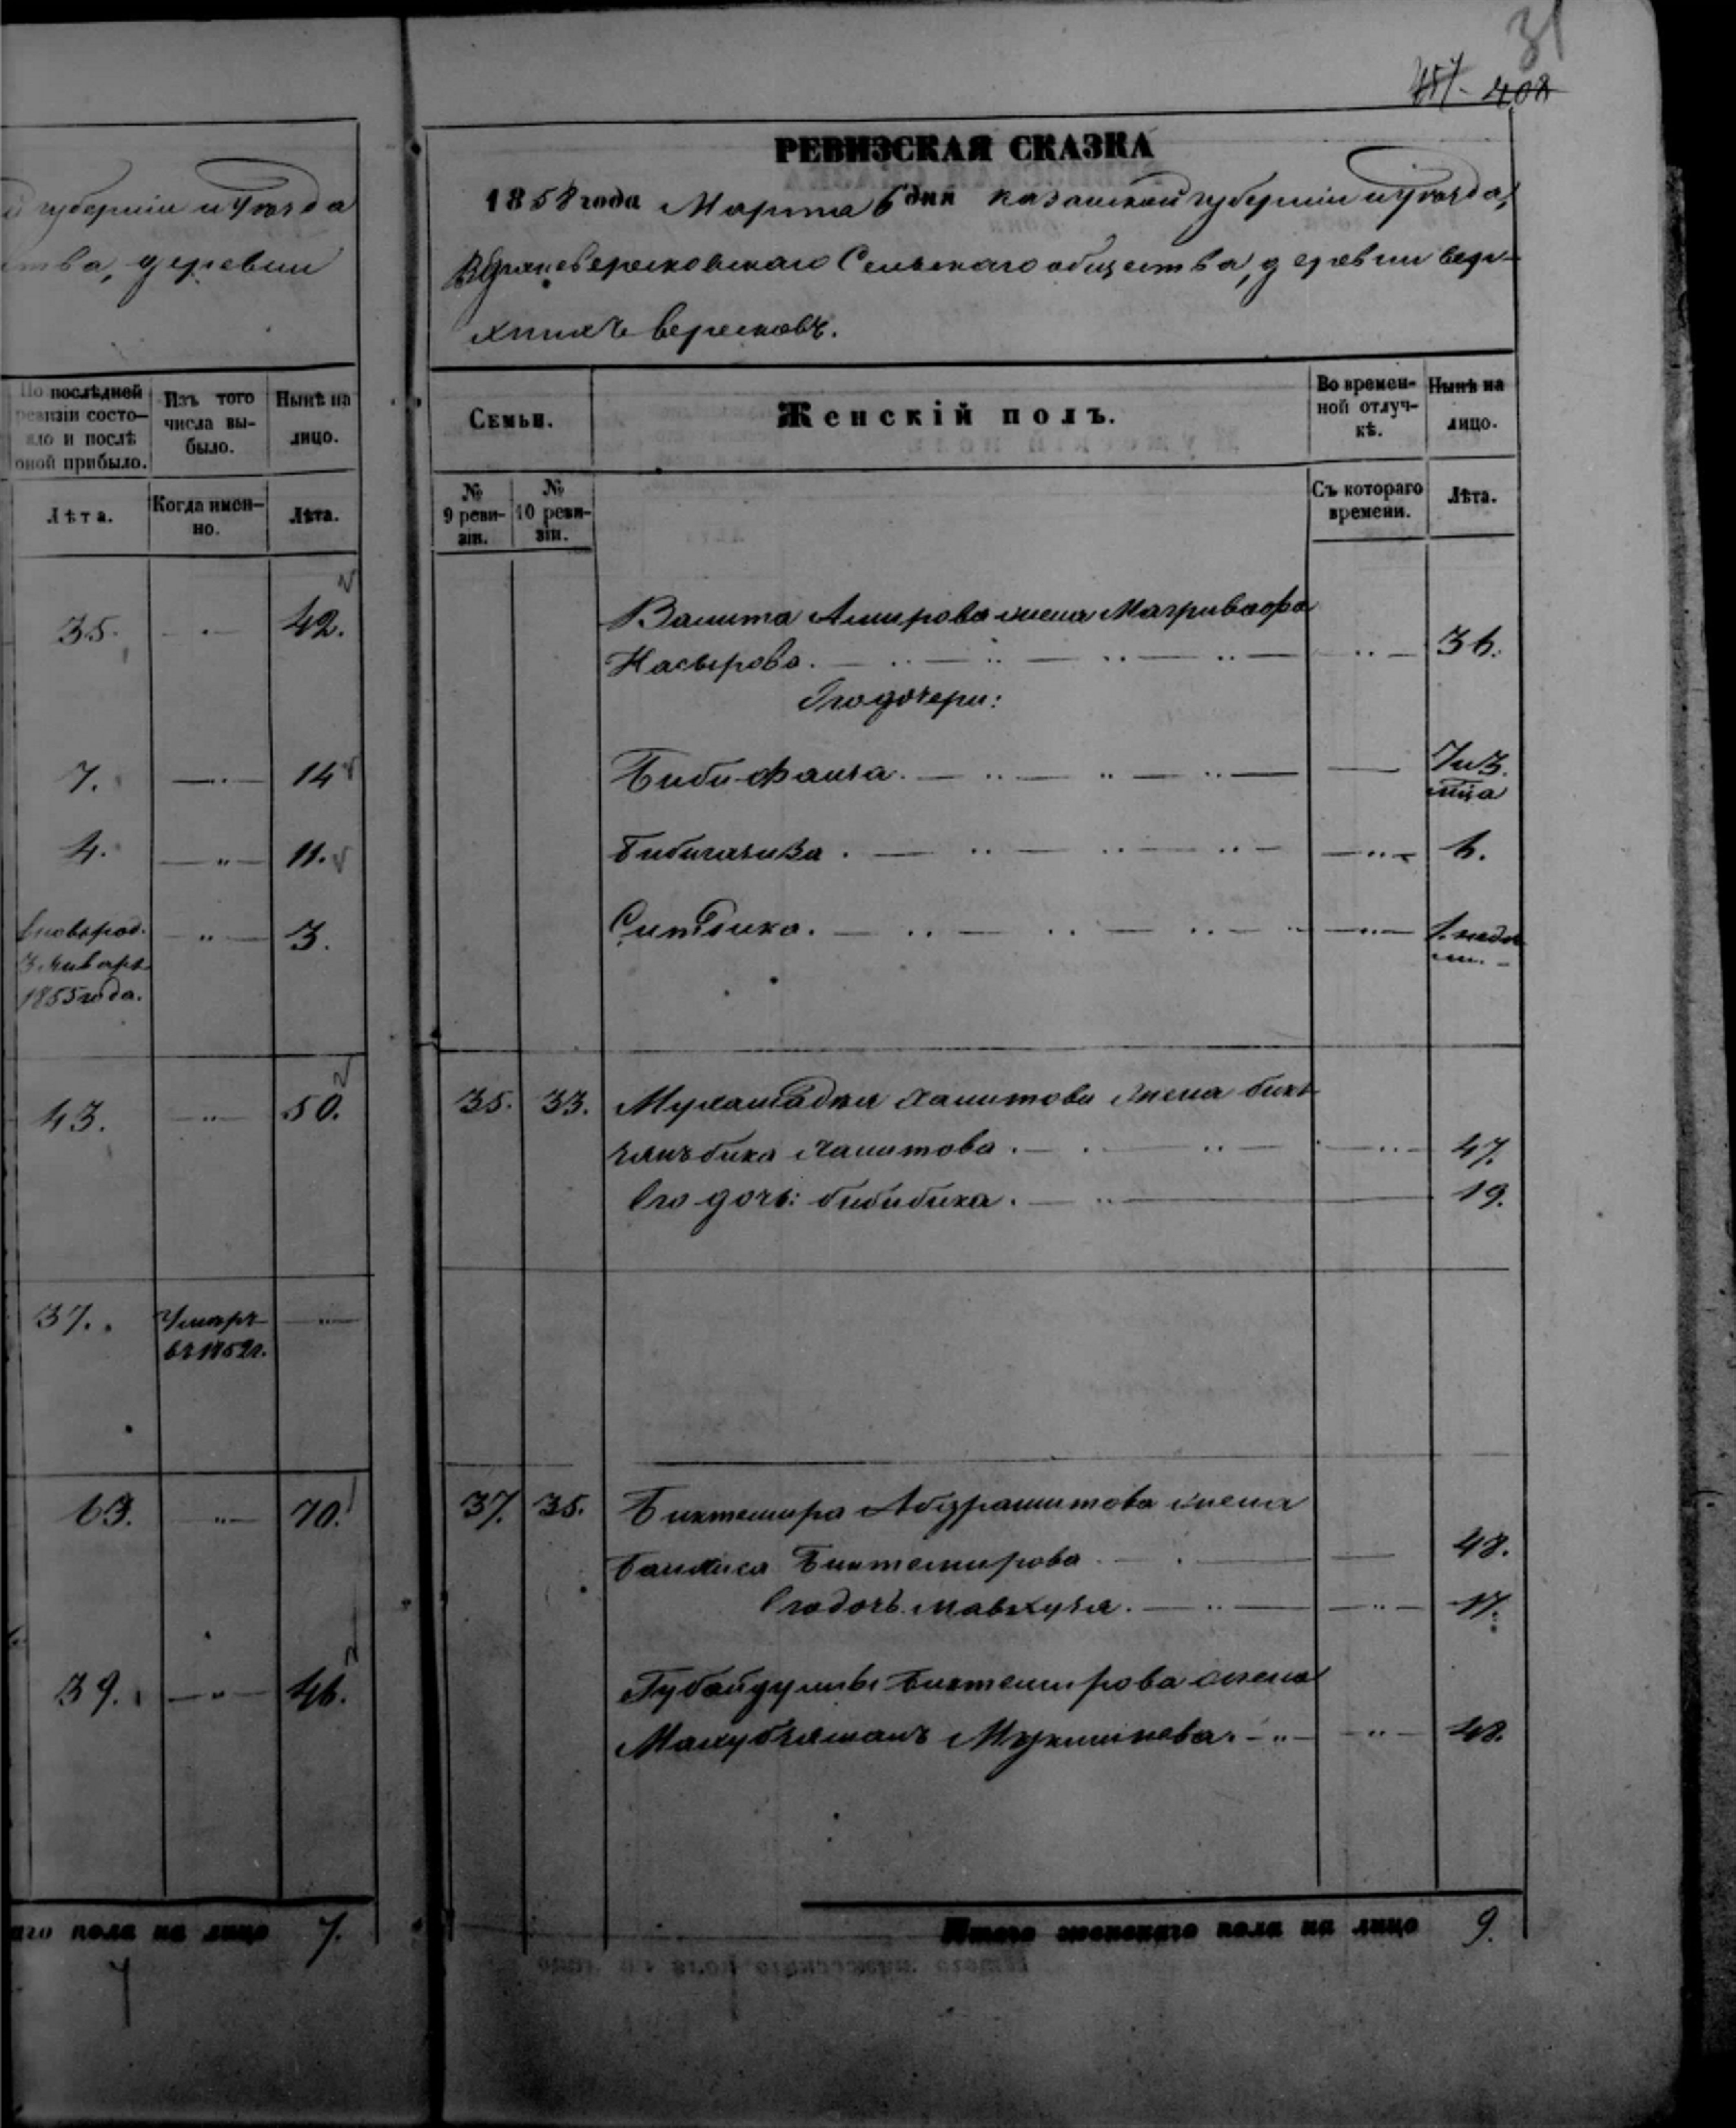 31
408
й губерніи и Уѣзда
ства, деревни
По послѣдней ревизіи состояло и послѣ оной прибыло.
Изъ того числа выбыло.
Нынѣ на лицо.
Лѣта.
Когда именно.
Лѣта.
35. 42.
7. 14
4. 11.
вноврод.
3 Января
1855 года.
3.
43. 50.
37. Умеръ
въ 1852 г.
63. 70.
39. 46.
аго пола на лицо 7.
7
РЕВИЗСКАЯ СКАЗКА
1858 года Марта 6 дня Казанской губерніи и Уѣзда,
Верхневересковскаго Сельскаго общества, деревни Вер-
хнихъ Вересковъ.
Семьи.
Женскій полъ.
Во временной отлучкѣ.
Нынѣ на лицо.
№ 9 ревизіи.
№ 10 ревизіи.
Съ котораго времени.
Лѣта.
Валита Амирова жена
Насырова. 36.
Его дочери:
Биби 7 и 3.
мца
6.
1. неде
ли.
35. 33. Хамитова жена
Хамитова. 47.
Его дочь: Бибибика. 19.
37. 35. Биктемира Абдрашитова жена
Биктемирова 48.
Его дочь 17.
Губайдуллы Биктемирова жена
48.
Итого женскаго пола на лицо 9.